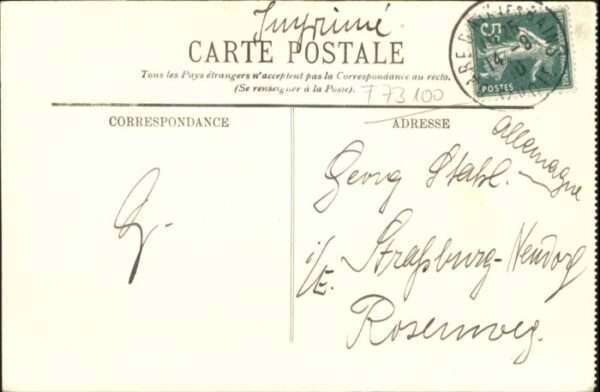 Imprimé
CARTE POSTALE
Tous les Pays étrangers n'acceptent pas la Correspondance au recto.
(Se renseigner à la Poste).
T 73100
5c
POSTES
14-8
CORRESPONDANCE
ADRESSE
Allemagne
Georg Stahl.
i/E. Straßburg-Neudorf
Rosenweg.